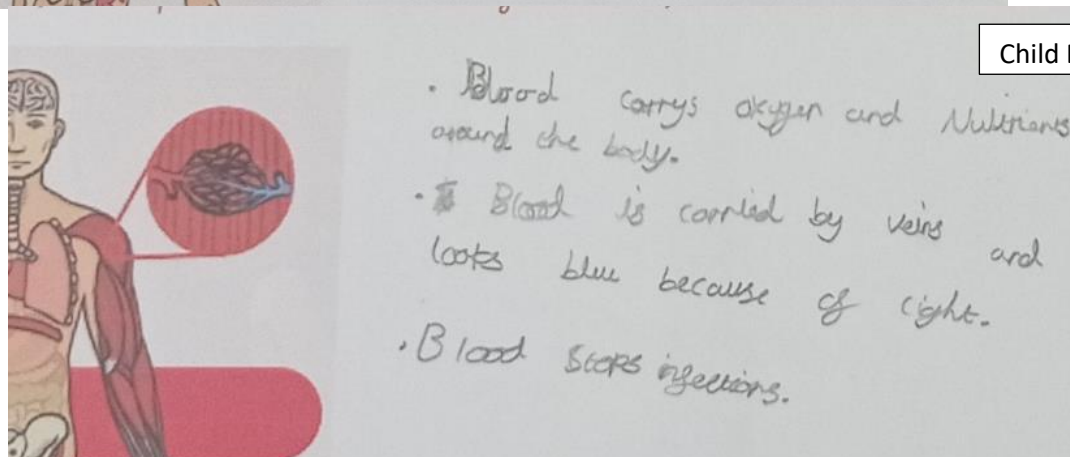 Child
. Blood carrys oxygen and Nutrians
around the body.
. Blood is carried by veins and
looks blue because of light.
. Blood stops infections.